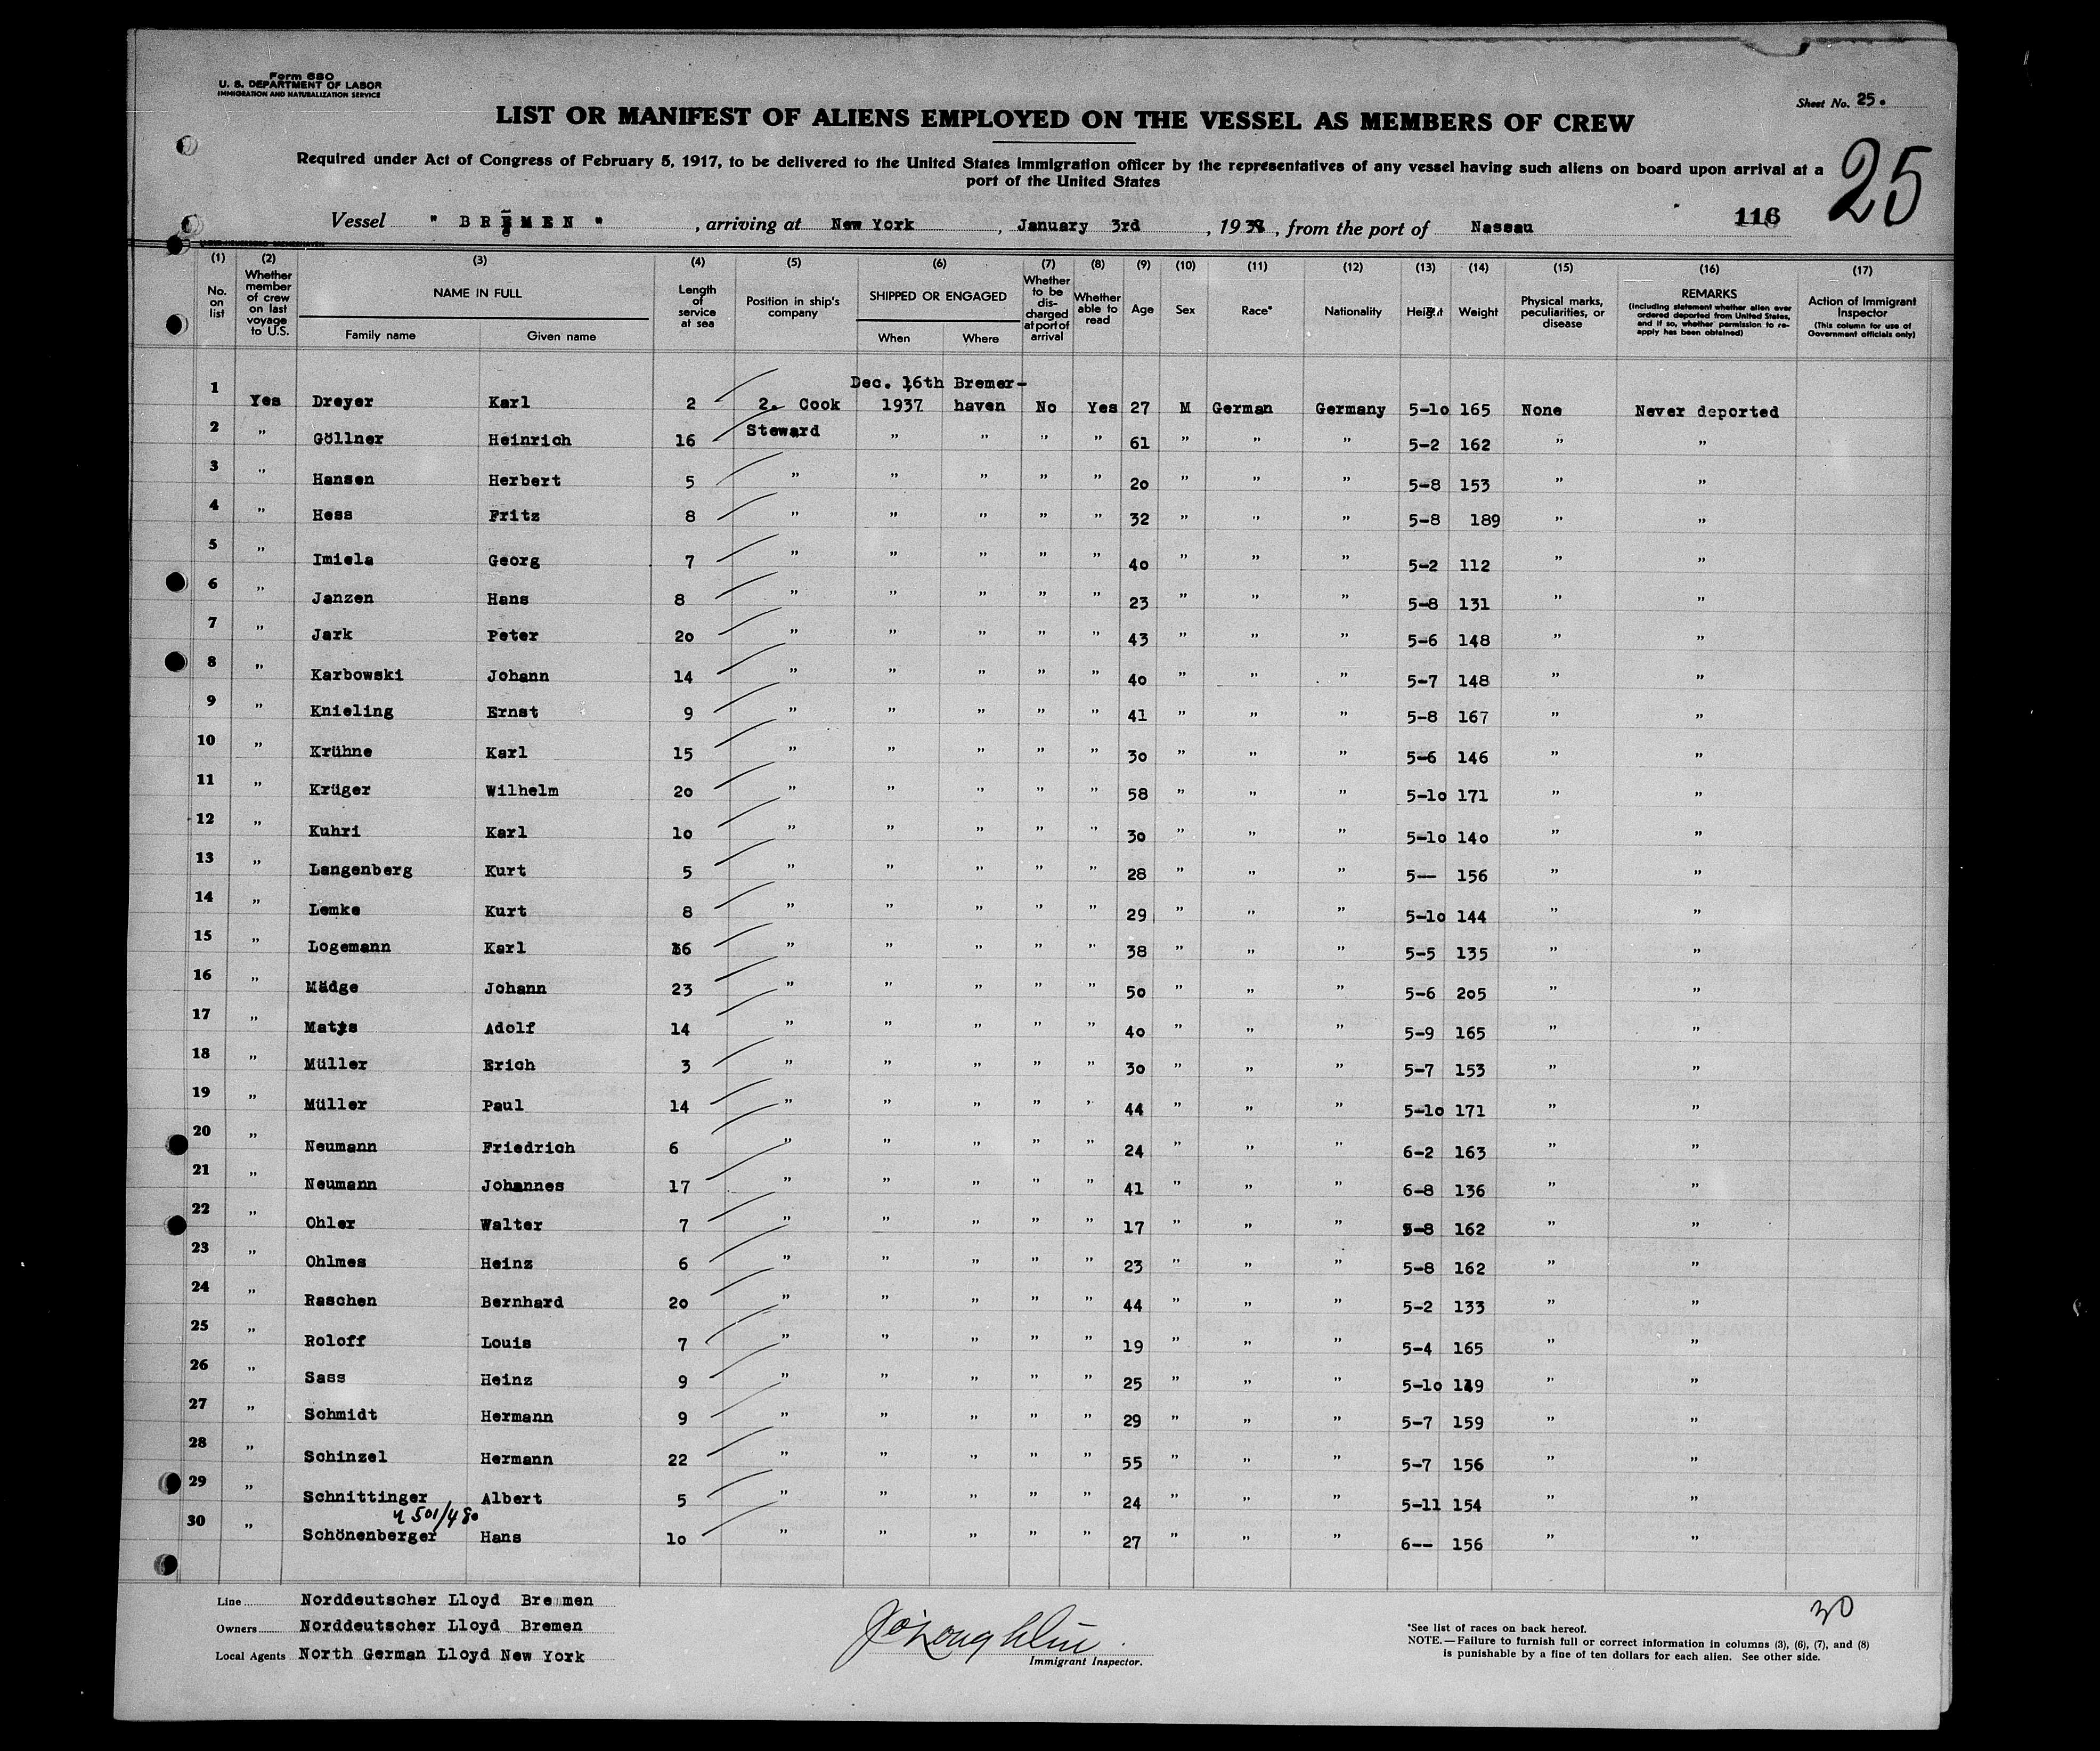 Form 680
U. S. DEPARTMENT OF LABOR
IMMIGRATION AND NATURALIZATION SERVICE
Sheet No. 25.
LIST OR MANIFEST OF ALIENS EMPLOYED ON THE VESSEL AS MEMBERS OF CREW
25
Required under Act of Congress of February 5, 1917, to be delivered to the United States immigration officer by the representatives of any vessel having such aliens on board upon arrival at a
port of the United States
116
Vessel " BREMEN " , arriving at New York , January 3rd , 1938 , from the port of Nassau
(1) (2) (3) (4) (5) (6) (7) (8) (9) (10) (11) (12) (13) (14) (15) (16) (17)
No. on list Whether member of crew on last voyage to U.S. NAME IN FULL Family name Given name Length of service at sea Position in ship's company SHIPPED OR ENGAGED When Where Whether to be discharged at port of arrival Whether able to read Age Sex Race* Nationality Height Weight Physical marks, peculiarities, or disease REMARKS (including statement whether alien ever ordered deported from United States, and if so, whether permission to reapply has been obtained) Action of Immigrant Inspector (This column for use of Government officials only)
1 Yes Dreyer Karl 2 2. Cook Dec. 16th 1937 Bremer-haven No Yes 27 M German Germany 5-10 165 None Never deported
2 " Göllner Heinrich 16 Steward " " " " 61 " " " 5-2 162 " "
3 " Hansen Herbert 5 " " " " " 20 " " " 5-8 153 " "
4 " Hess Fritz 8 " " " " " 32 " " " 5-8 189 " "
5 " Imiela Georg 7 " " " " " 40 " " " 5-2 112 " "
6 " Janzen Hans 8 " " " " " 23 " " " 5-8 131 " "
7 " Jark Peter 20 " " " " " 43 " " " 5-6 148 " "
8 " Karbowski Johann 14 " " " " " 40 " " " 5-7 148 " "
9 " Knieling Ernst 9 " " " " " 41 " " " 5-8 167 " "
10 " Krühne Karl 15 " " " " " 30 " " " 5-6 146 " "
11 " Krüger Wilhelm 20 " " " " " 58 " " " 5-10 171 " "
12 " Kuhri Karl 10 " " " " " 30 " " " 5-10 140 " "
13 " Langenberg Kurt 5 " " " " " 28 " " " 5-- 156 " "
14 " Lemke Kurt 8 " " " " " 29 " " " 5-10 144 " "
15 " Logemann Karl 16 " " " " " 38 " " " 5-5 135 " "
16 " Mädge Johann 23 " " " " " 50 " " " 5-6 205 " "
17 " Adolf 14 " " " " " 40 " " " 5-9 165 " "
18 " Müller Erich 3 " " " " " 30 " " " 5-7 153 " "
19 " Müller Paul 14 " " " " " 44 " " " 5-10 171 " "
20 " Neumann Friedrich 6 " " " " " 24 " " " 6-2 163 " "
21 " Neumann Johannes 17 " " " " " 41 " " " 6-8 136 " "
22 " Ohler Walter 7 " " " " " 17 " " " 5-8 162 " "
23 " Ohlmes Heinz 6 " " " " " 23 " " " 5-8 162 " "
24 " Raschen Bernhard 20 " " " " " 44 " " " 5-2 133 " "
25 " Roloff Louis 7 " " " " " 19 " " " 5-4 165 " "
26 " Sass Heinz 9 " " " " " 25 " " " 5-10 " "
27 " Schmidt Hermann 9 " " " " " 29 " " " 5-7 159 " "
28 " Schinzel Hermann 22 " " " " " 55 " " " 5-7 156 " "
29 " Schnittinger Albert 5 " " " " " 24 " " " 5-11 154 " "
501/480
30 " Schönenberger Hans 10 " " " " " 27 " " " 6-- 156 " "
Line Norddeutscher Lloyd Bremen
Owners Norddeutscher Lloyd Bremen
Local Agents North German Lloyd New York
Immigrant Inspector.
30
*See list of races on back hereof.
NOTE.—Failure to furnish full or correct information in columns (3), (6), (7), and (8)
is punishable by a fine of ten dollars for each alien. See other side.